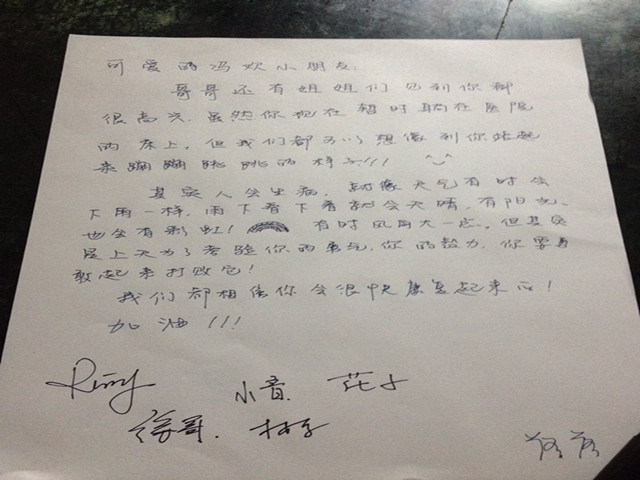 可爱的冯欢小朋友:
哥哥还有姐姐们见到你都
很高兴.虽然你现在暂时躺在医院
的床上,但我们都可以想像到你站起
来蹦蹦跳跳的样子!!! ^_^
其实人会生病,就像天气有时会
下雨一样,雨下着下着就会天晴,有阳光.
也会有彩虹! 有时风雨大一点,但其实
是上天为了考验你的勇气,你的毅力,你要勇
敢起来打败它!
我们都相信你会很快康复起来的!
加油!!!
小音. 花子
徐哥.